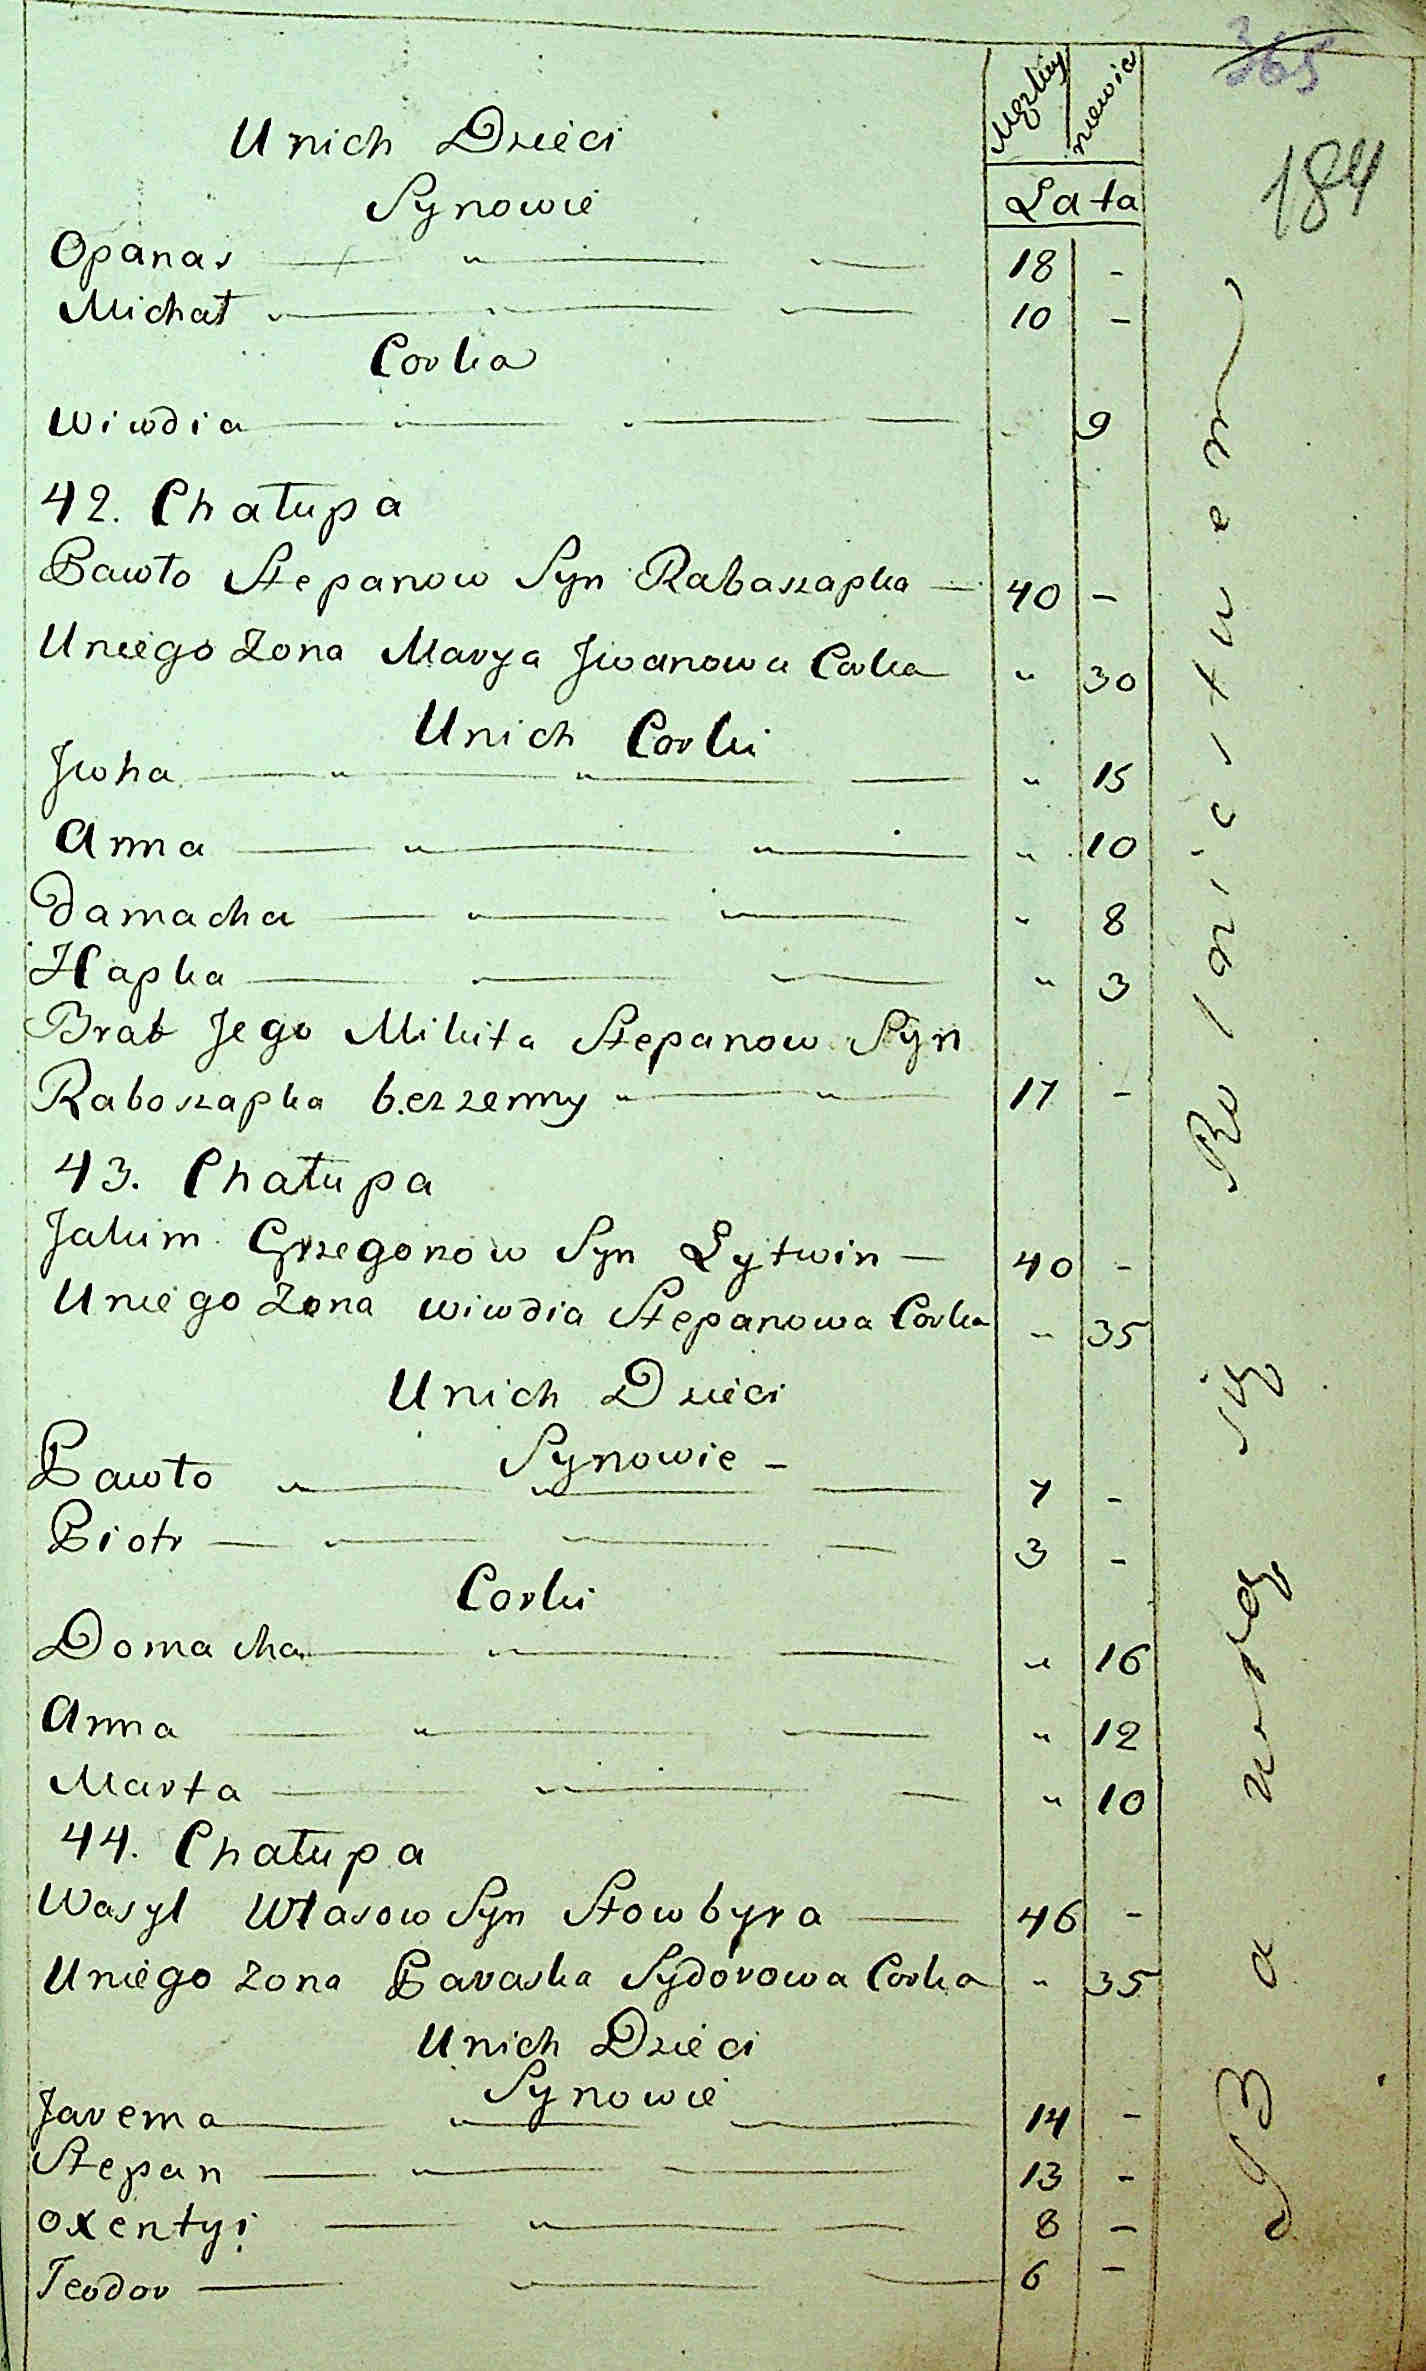 365
184
Męzkiey niewie
Unich Dzieci
Lata
Synowie
Opanas — " — " — 18 -
Michał " — " — " — 10 -
Corka
Wiwdia — " — " — 9
42. Chałupa
Pawło Stepanow Syn Rabaszapka — 40 -
Uniego Zona Marya Jwanowa Corka " 30
Unich Corki
Jwha — " — " — " 15
Anna — " — " — " 10
Damacha — " — " — " 8
Hapka — " — " — " 3
Brat Jego Mikita Stepanow Syn
Raboszapka bezzenny " — " — 17 -
43. Chałupa
Jakim Grzegorzow Syn Lytwin — 40 -
Uniego Zona Wiwdia Stepanowa Corka " 35
Unich Dzieci
Synowie -
Pawło " — " — 7 -
Piotr — " — " — 3 -
Corki
Domacha — " — " 16
Anna — " — " — " 12
Marta — " — " 10
44. Chałupa
Wasyl Własow Syn Stowbyra — 46 -
Uniego Zona Paraska Sydorowa Corka " 35
Unich Dzieci
Synowie
Jarema — " — " — 14 -
Stepan — " — " — 13 -
Oxentyi — " — 8 -
Teodor — " — 6 -
Bawią się Rolnictwem